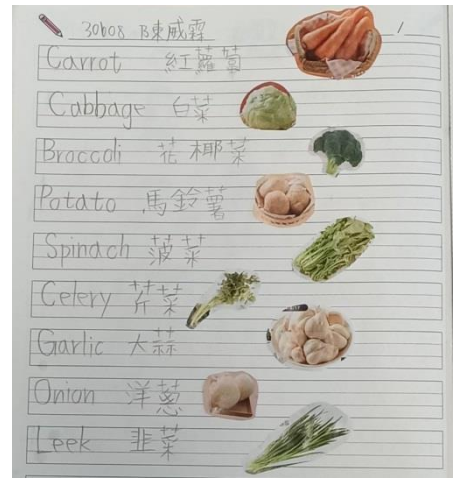 30608 陳威霖
Carrot 紅蘿蔔
Cabbage 白菜
Broccoli 花椰菜
Potato 馬鈴薯
Spinach 菠菜
Celery 芹菜
Garlic 大蒜
Onion 洋蔥
Leek 韭菜